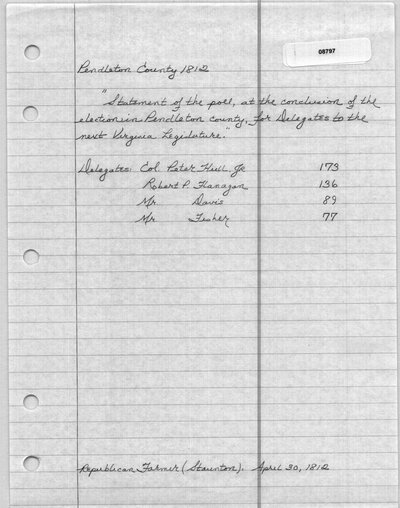 08797
Pendleton County 1812
"Statement of the poll, at the conclusion of the
election in Pendleton county, for Delegates to the
next Virginia Legislature."
Delegates: Col. Peter Hull Jr 173
Robert P. Flanagan 136
Mr Davis 89
Mr Fisher 77
Republican Farmer (Staunton). April 30, 1812